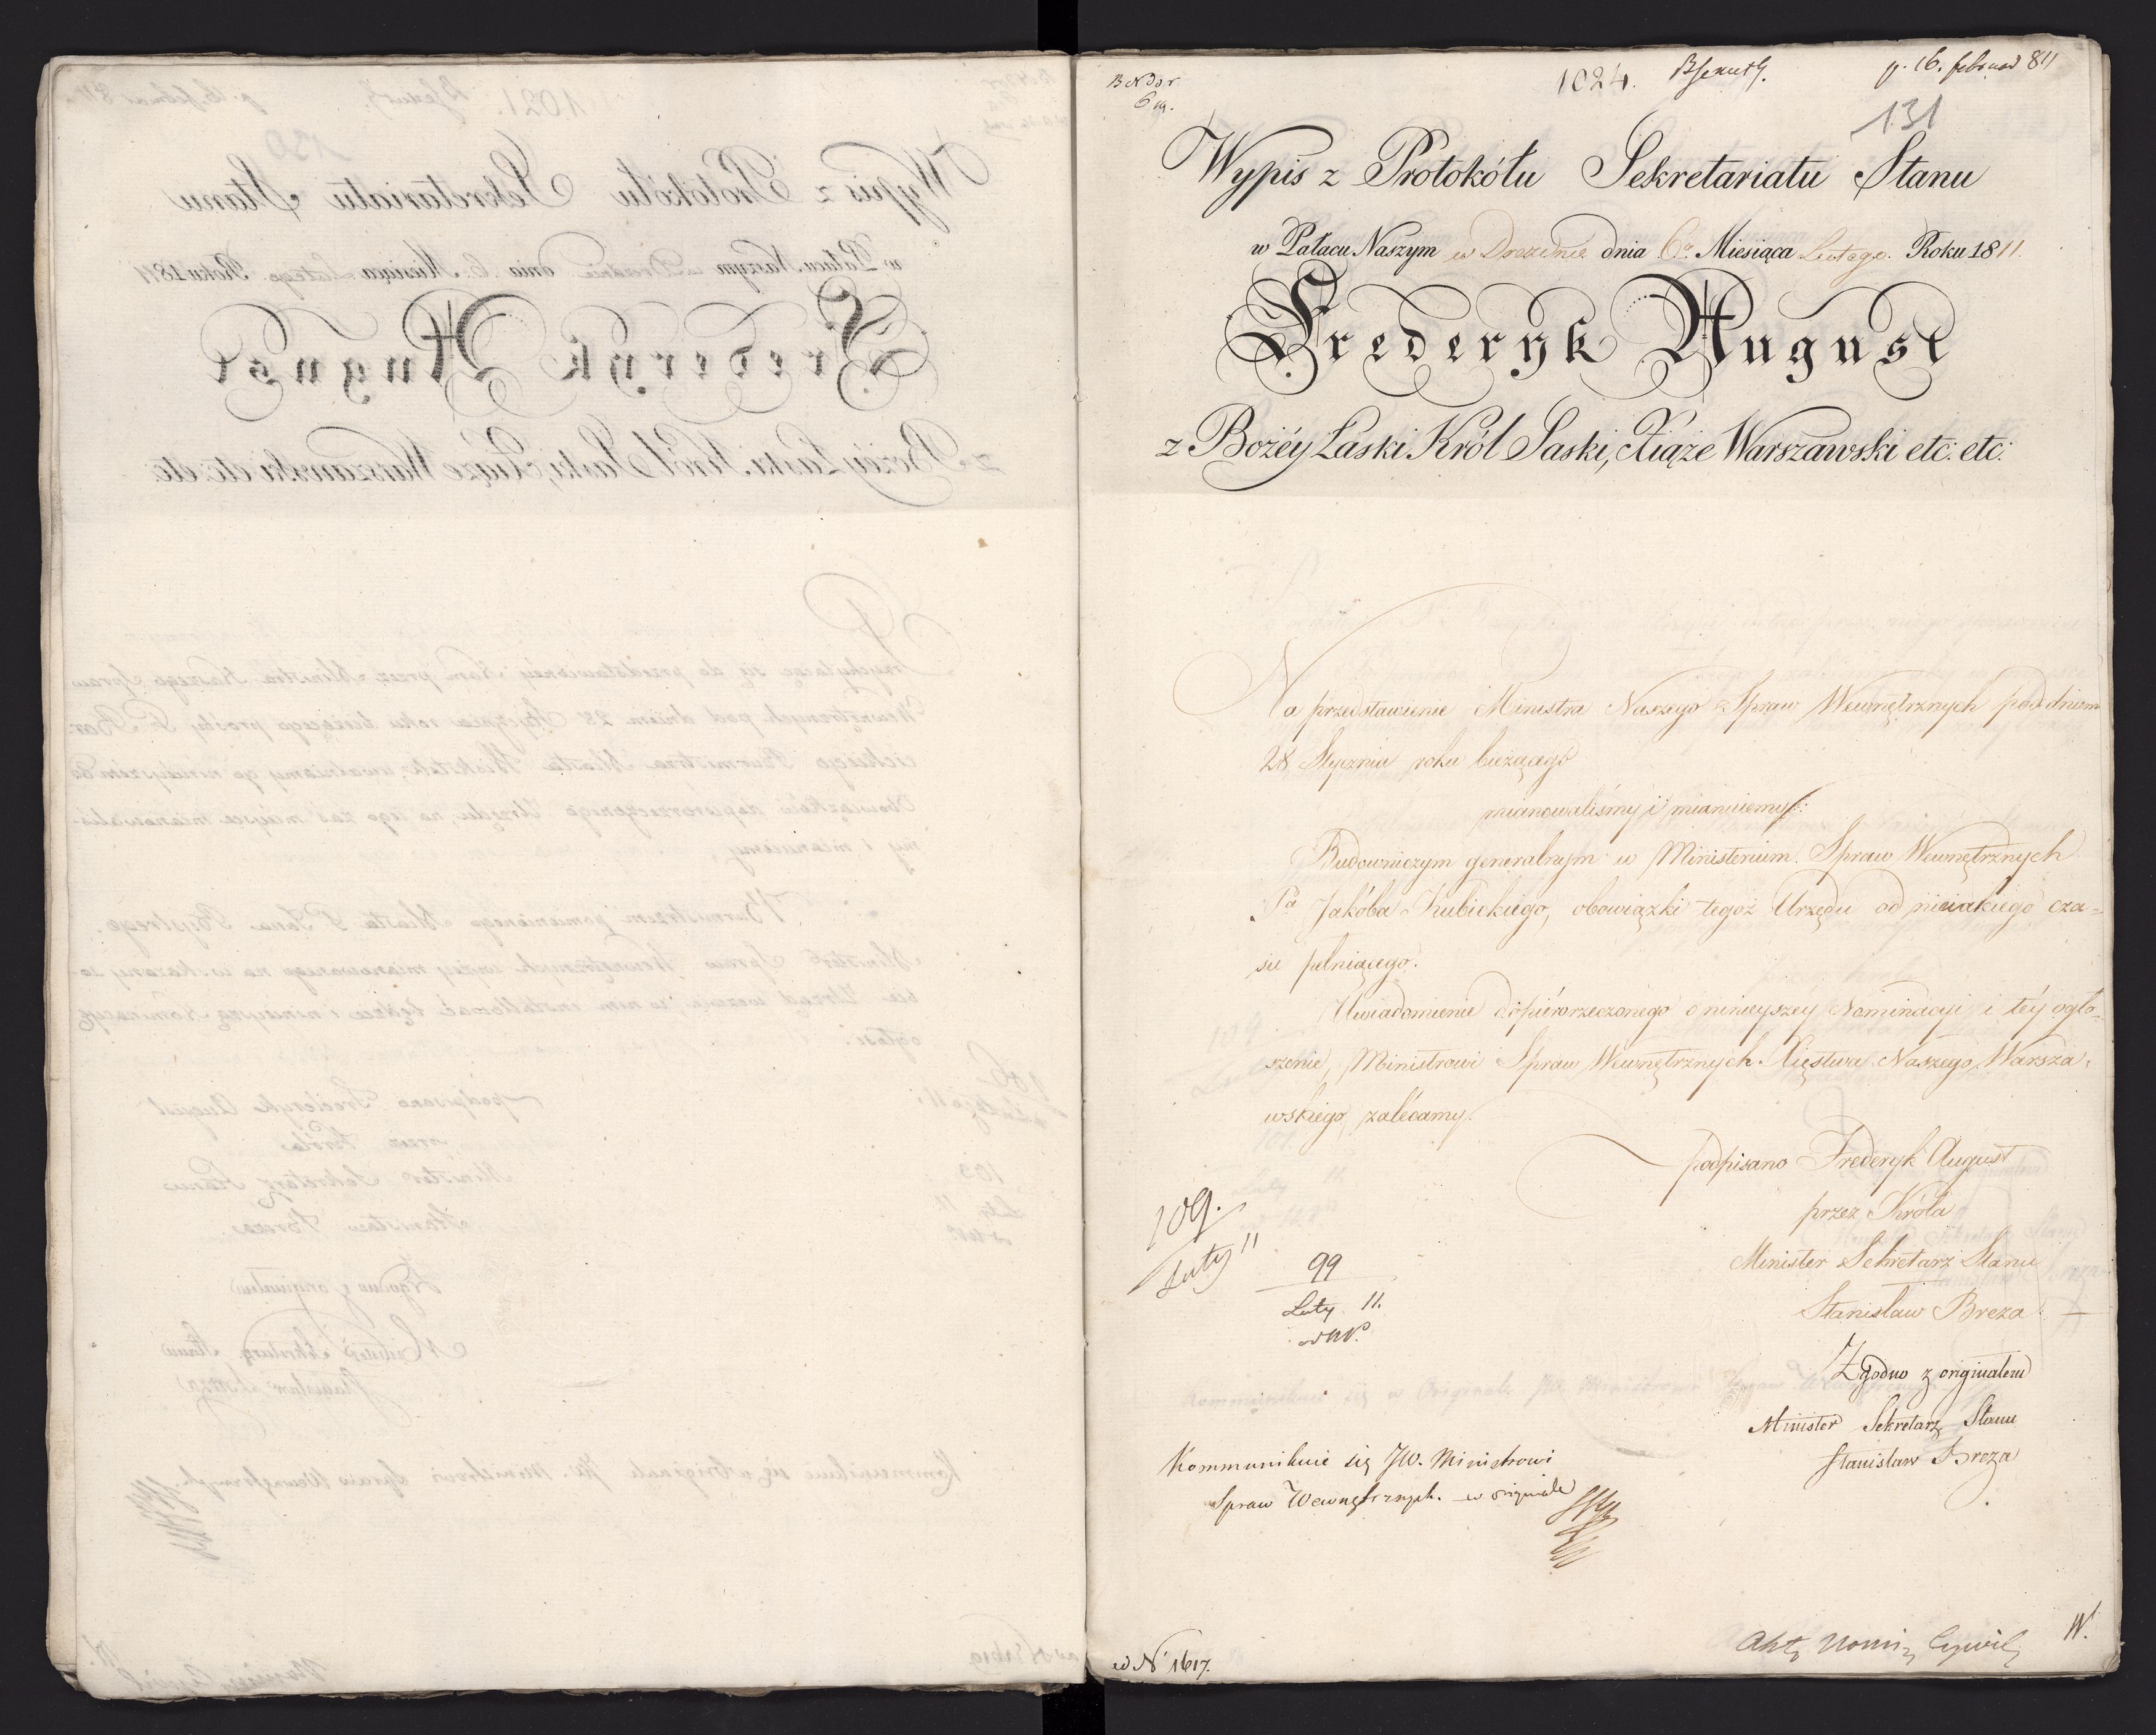 1024.
p. 16. februar 811
131
Wypis z Protokółu Sekretariatu Stanu
w Pałacu Naszym w Dreznie dnia 6o. Miesiąca Lutego. Roku 1811.
Frederyk August
z Bożéy Łaski Król Saski, Xiąże Warszawski etc: etc:
Na przedstawienie Ministra Naszego Spraw Wewnętrznych pod dniem
28 Stycznia roku bieżącego
mianowaliśmy i mianuiemy:
Budowniczym generalnym w Ministerium Spraw Wewnętrznych
Pa Jakóba Kubickiego, obowiązki tegoż Urzędu od nieiakiego cza=
su pełniącego.
Uwiadomienie dopiérorzeczonego o ninieyszéy Nominacyi i téy ogło=
szenie, Ministrowi Spraw Wewnętrznych Xięstwa Naszego Warsza=
wskiego, zalécamy.
podpisano Frederyk August
przez Króla
Minister Sekretarz Stanu
Stanisław Breza
109.
Luty 11
99
Luty 11.
Zgodno z originałem
Minister Sekretarz Stanu
Stanisław Breza
Kommunikuie się JW. Ministrowi
Spraw Wewnętrznych. w originale
ad N 1617.
Akta Nomin. Cywil.